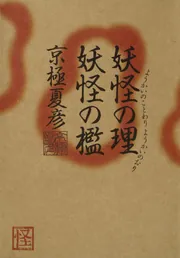 妖怪の理
ようかいのことわり
妖怪の檻
ようかいのオリ
京極夏彦
怪